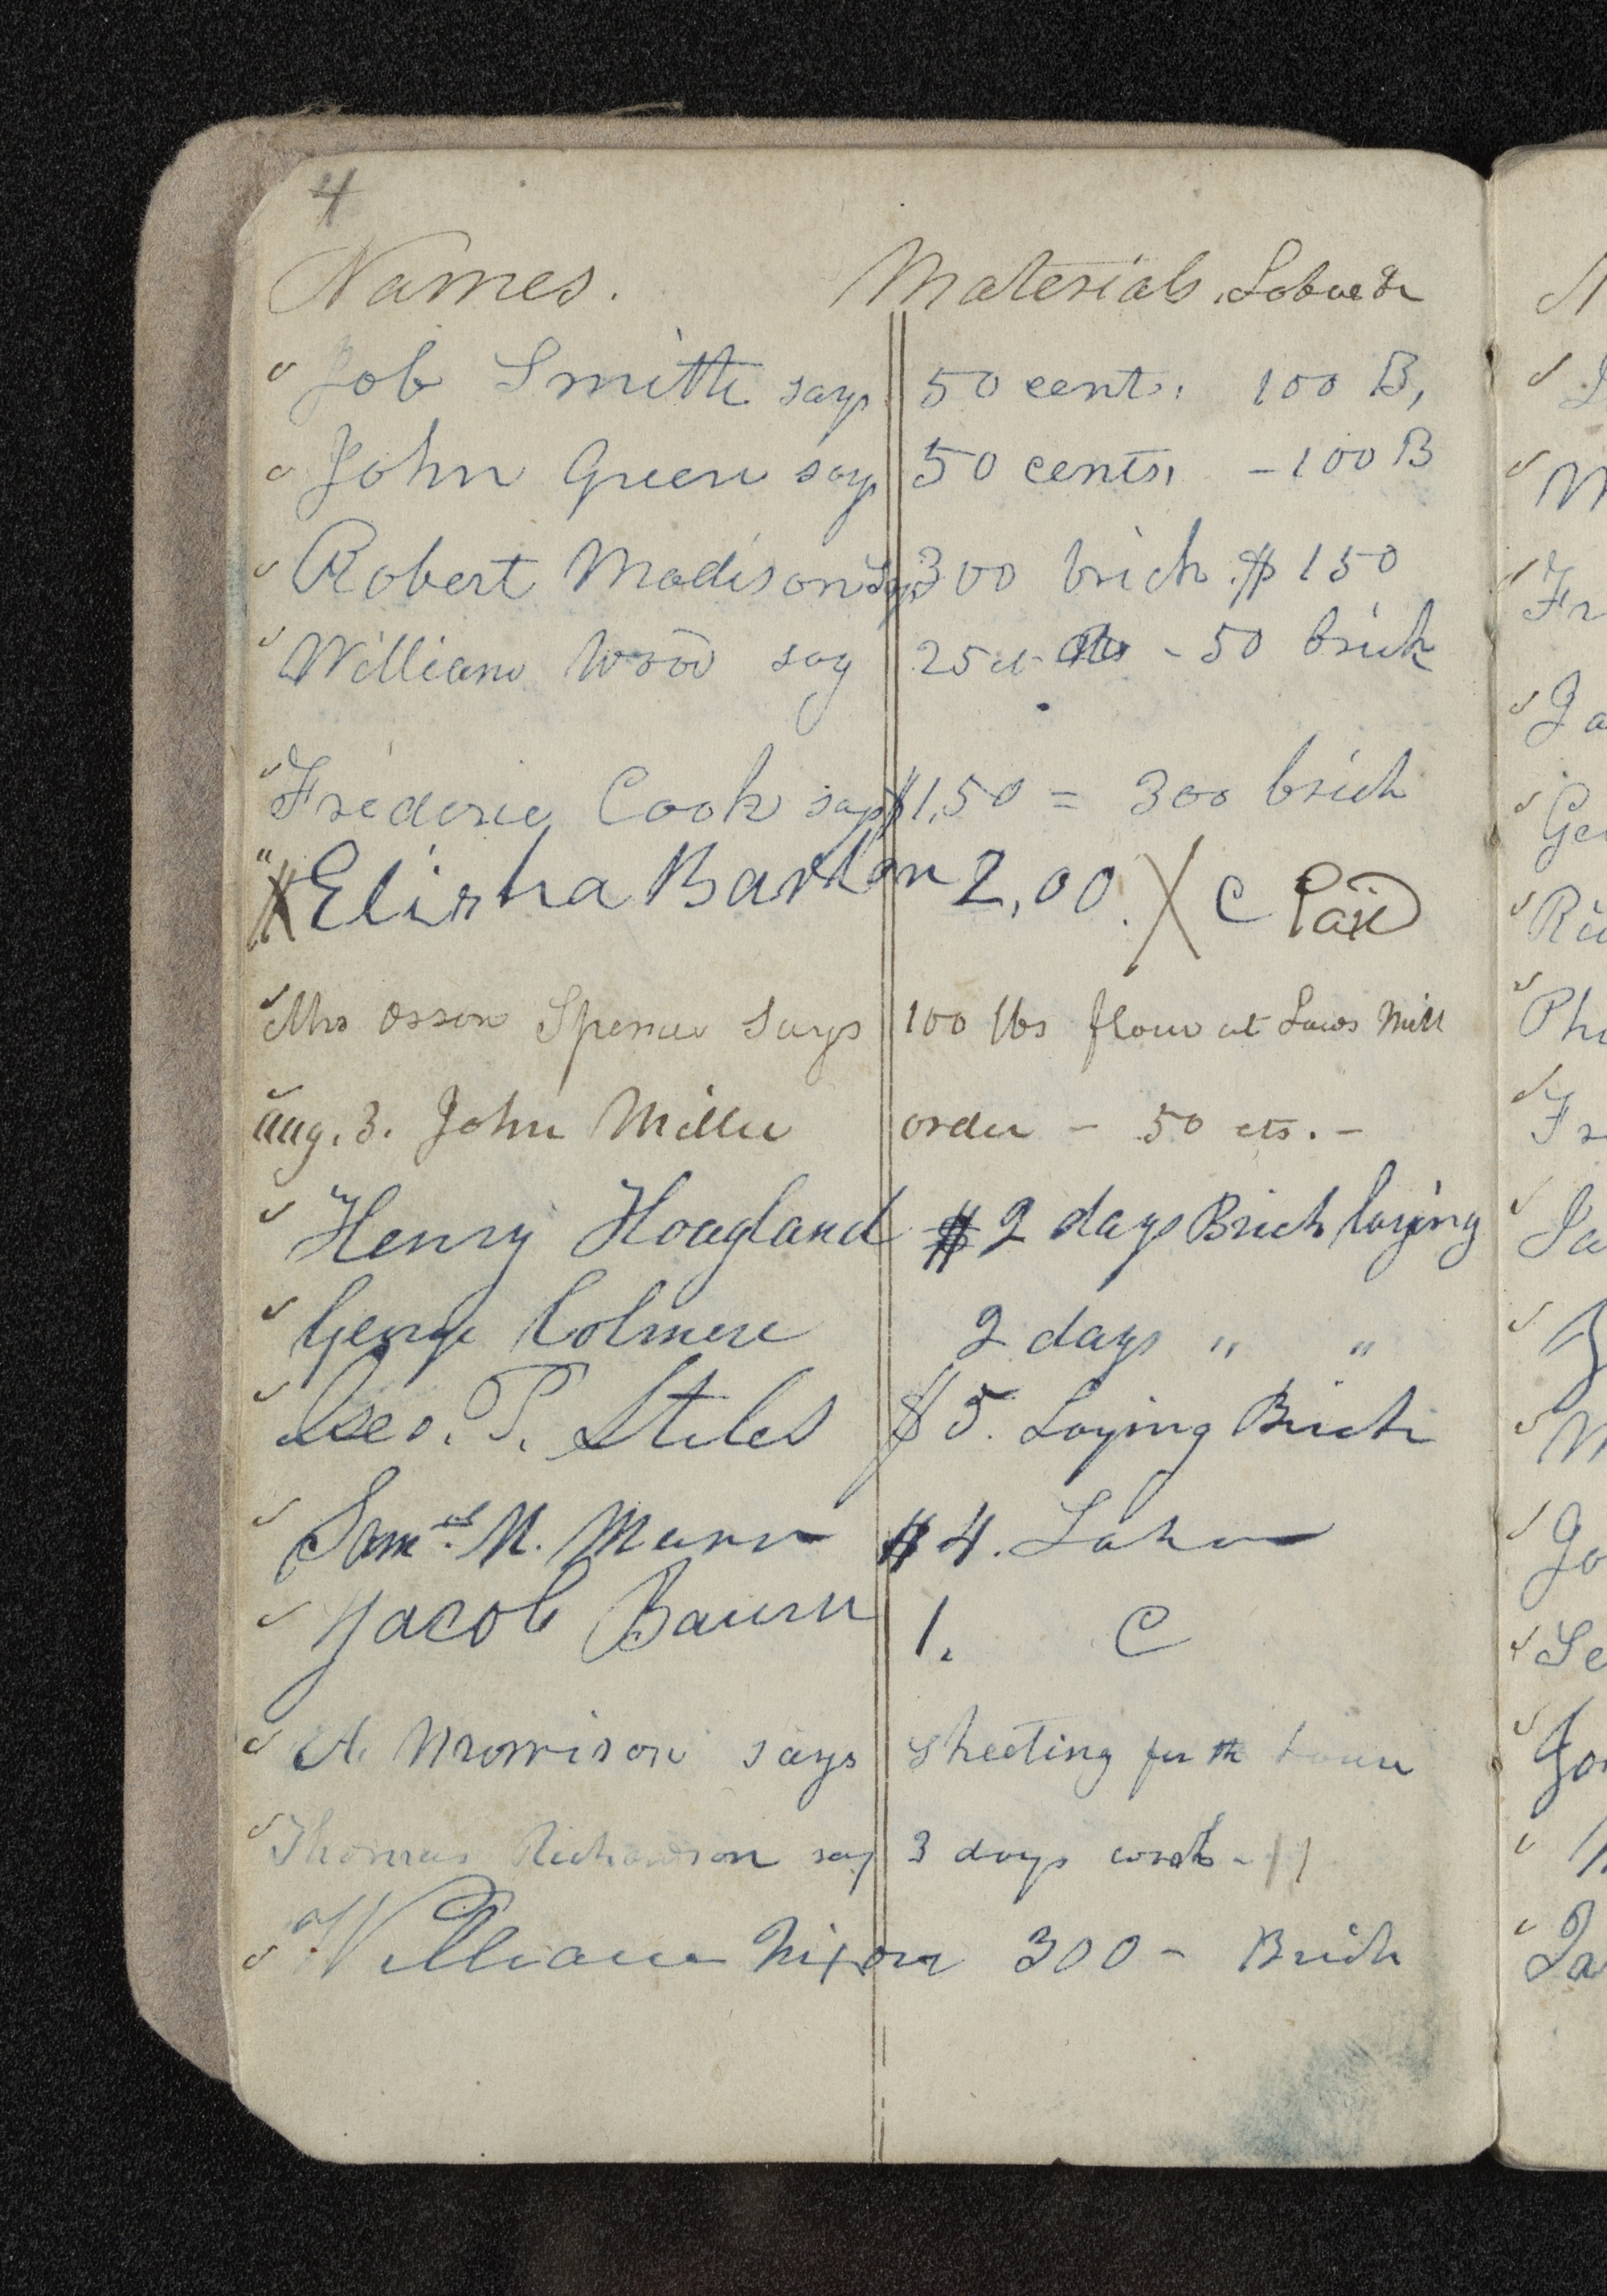 4
Names. Materials, Labor &c
Job Smith says 50 cents, 100 B,
John Green says 50 cents, - 100 B
Robert Madison says 300 brick $150
William Wood say 25 ct - 50 brick
Frederic Cook says $1,50 = 300 brick
X Elisha Barton 2,00. X C Paid
Mrs Orson Spencer says 100 lbs flour at Laws Mill
Aug. 3. John Miller order - 50 cts. -
Henry Hoagland $2 days Brick laying
George Colmere 2 days " "
Geo. P. Stiles $5. Laying Brick
Saml. M. Marr $4. Labor
Jacob Baum 1. C
A. Morrison says sheeting for the tower
Thomas Richardson say 3 days work -
William Nixon 300 - Brick